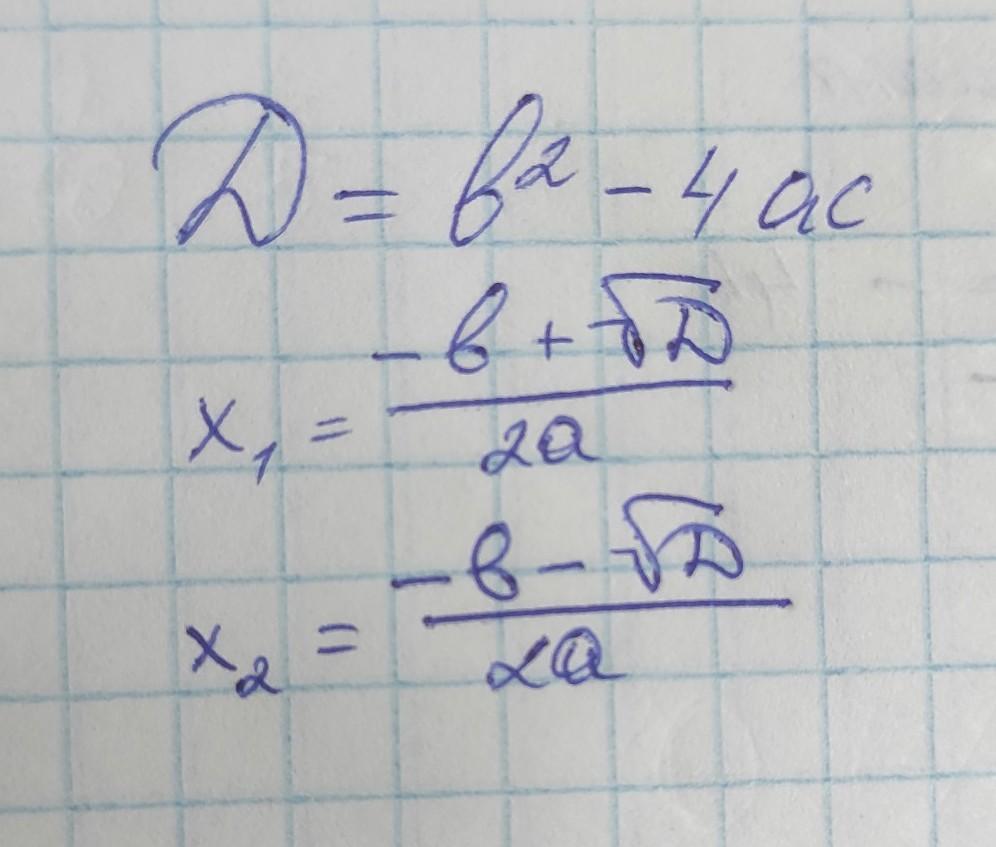 D = b² - 4ac
x₁ = (-b + √D) / 2a
x₂ = (-b - √D) / 2a